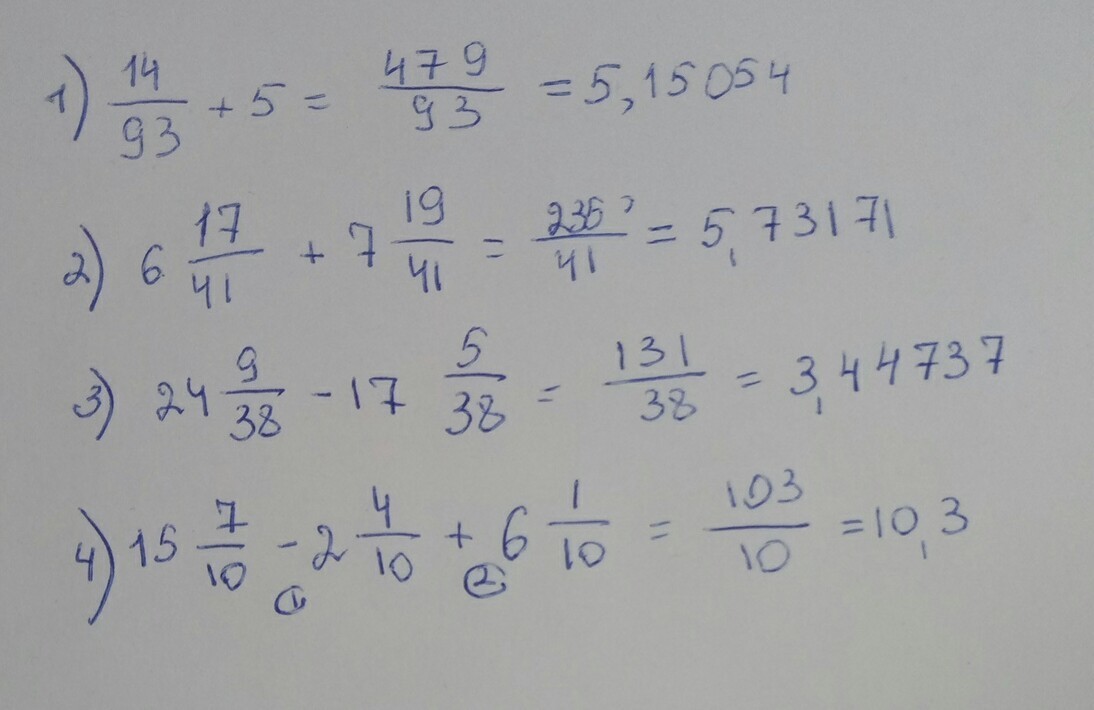 1) 14/93 + 5 = 479/93 = 5,15054
2) 6 17/41 + 7 19/41 = 235/41 = 5,73171
3) 24 9/38 - 17 5/38 = 131/38 = 3,44737
4) 15 7/10 - 2 4/10 + 6 1/10 = 103/10 = 10,3
① ②